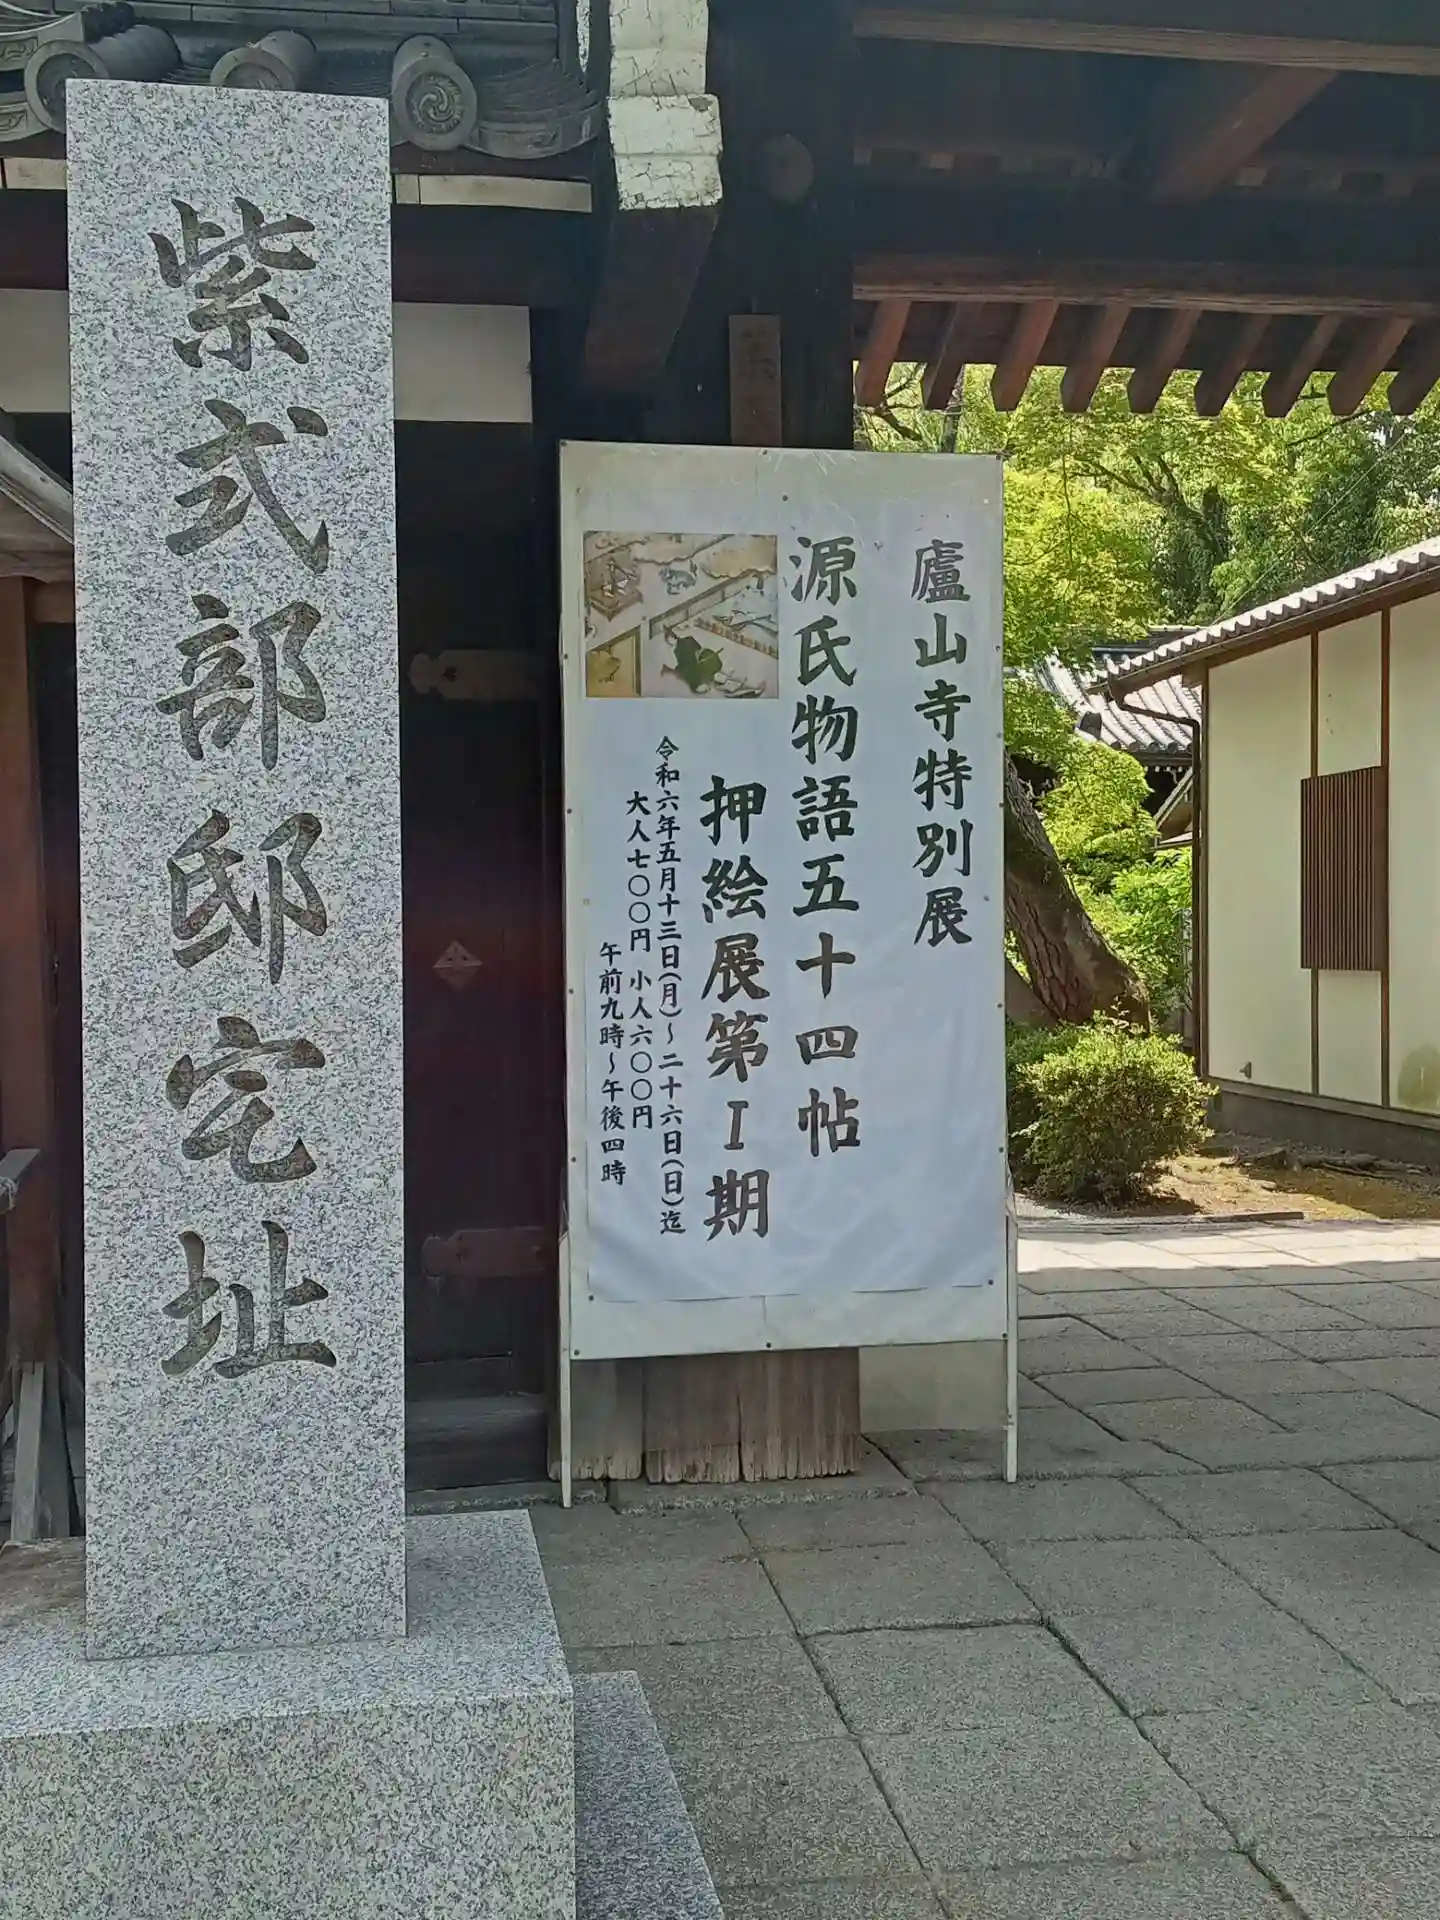 紫式部邸宅址
廬山寺特別展
源氏物語五十四帖
押絵展第Ⅰ期
令和六年五月十三日(月)〜二十六日(日)迄
大人七〇〇円 小人六〇〇円
午前九時〜午後四時